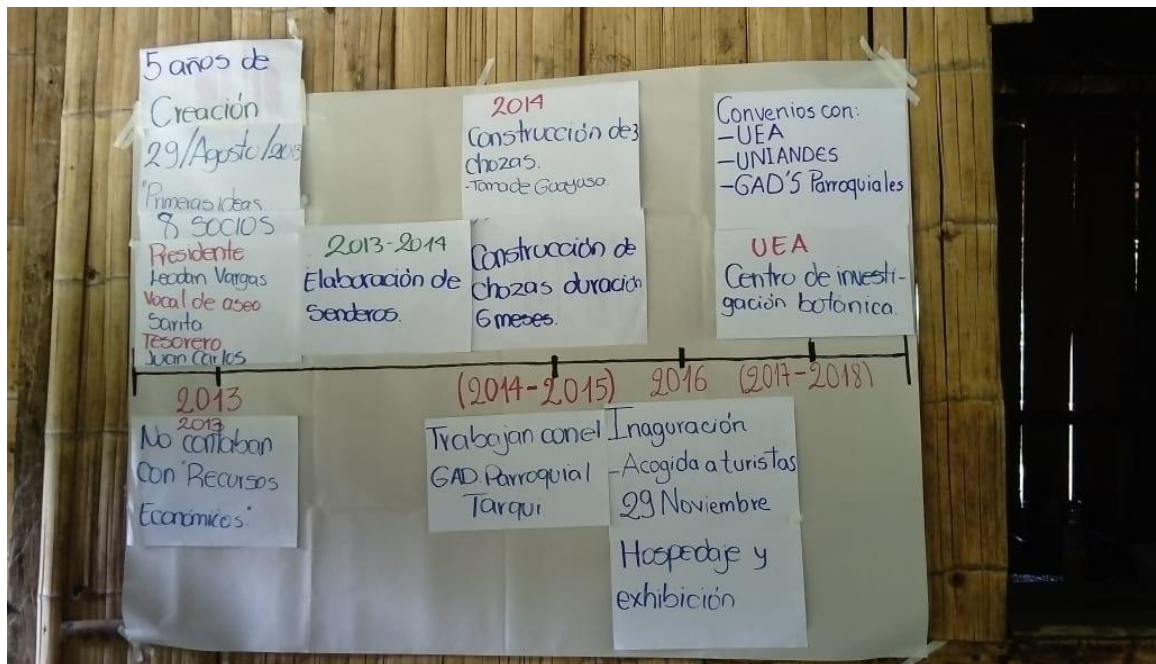 5 años de
Creación
29/Agosto/2013
"Primeras ideas
8 SOCIOS
Presidente
Leodan Vargas
Vocal de aseo
Sarita
Tesorero
Juan Carlos
2013-2014
Elaboración de
Senderos.
2014
Construcción de 3
chozas.
-Toma de Guayusa.
Construcción de
chozas duración
6 meses.
Convenios con:
-UEA
-UNIANDES
-GAD'S Parroquiales
UEA
Centro de investi-
gación botánica.
2013
(2014-2015)
2016
(2017-2018)
2013
No contaban
con "Recursos
Económicos"
Trabajan con el
GAD. Parroquial
Tarqui
Inaguración
-Acogida a turistas
29 Noviembre
Hospedaje y
exhibición